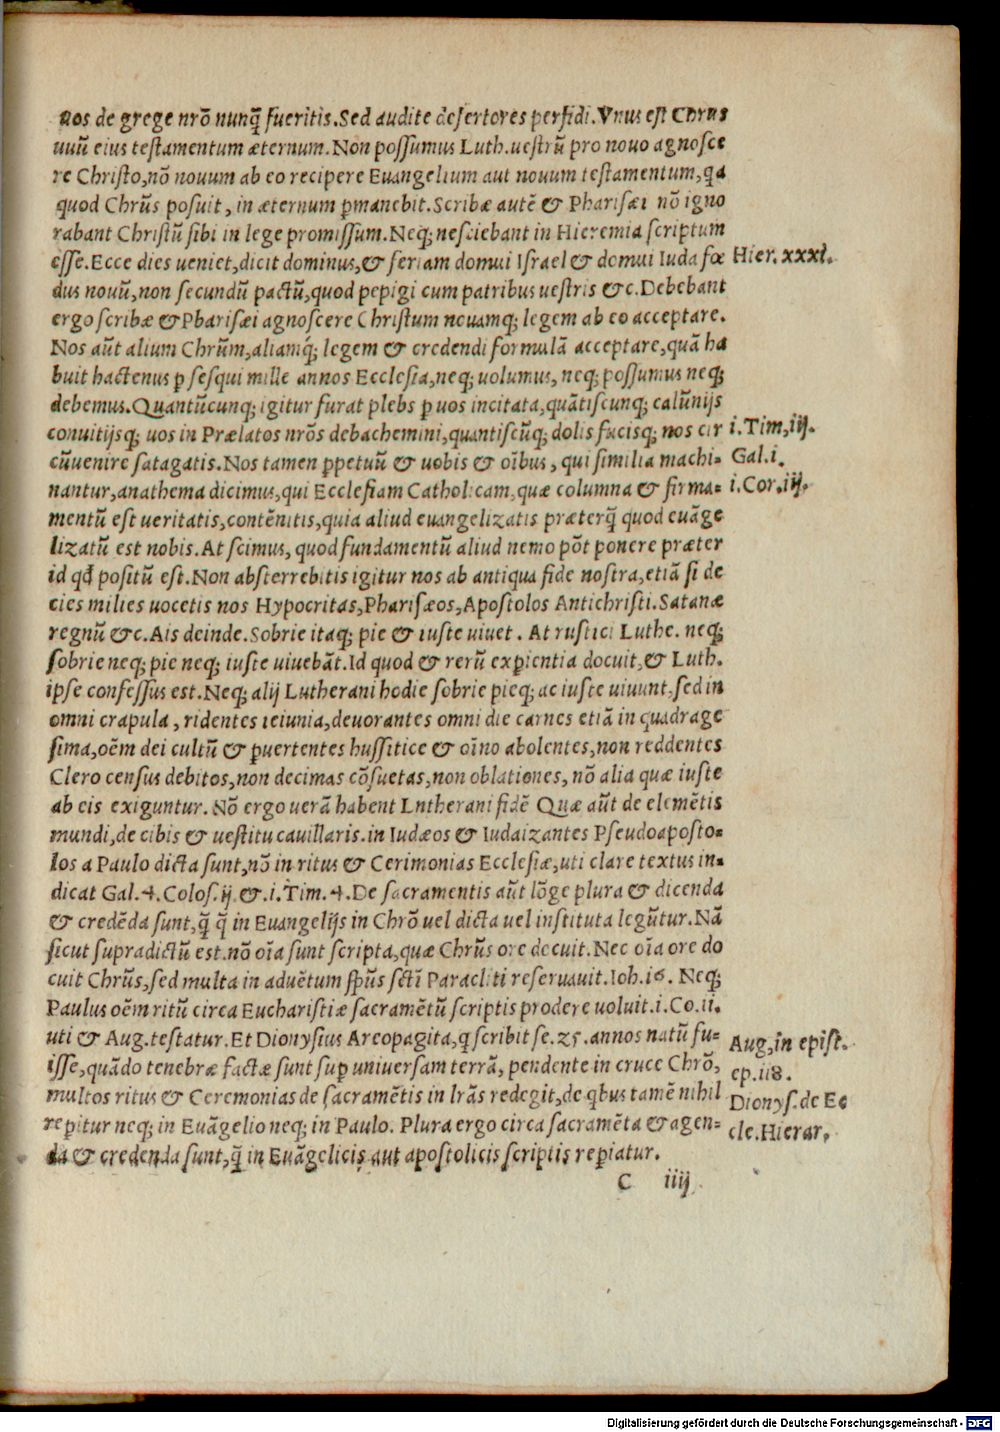 uos de grege nrõ nunq̃ fueritis. Sed audite desertores perfidi. Vnus est Chrus
unũ eius testamentum æternum. Non possumus Luth. uestrũ pro nouo agnosce
re Christo, nõ nouum ab eo recipere Euangelium aut nouum testamentum, qa
quod Chrũs posuit, in æternum ꝑmanebit. Scribæ autẽ & Pharisæi nõ igno
rabant Christũ sibi in lege promissum. Neq; nesciebant in Hieremia scriptum
esse. Ecce dies ueniet, dicit dominus, & feriam domui Israel & domui Iuda fœ Hier. xxxi.
dus nouũ, non secundũ pactũ, quod pepigi cum patribus uestris &c. Debebant
ergo scribæ & Pharisæi agnoscere Christum nouamq; legem ab eo acceptare.
Nos aũt alium Chrũm, aliamq; legem & credendi formulã acceptare, quã ha
buit hactenus ꝑ sesqui mille annos Ecclesia, neq; uolumus, neq; possumus neq;
debemus. Quantũcunq; igitur furat plebs ꝑ uos incitata, quãtiscunq; calũnijs
conuitijsq; uos in Prælatos nrõs debachemini, quantiscũq; dolis fucisq; nos cir i. Tim, iij.
cũuenire satagatis. Nos tamen ꝑpetuũ & uobis & oĩbus, qui similia machi= Gal. i.
nantur, anathema dicimus, qui Ecclesiam Catholicam, quæ columna & firma= i. Cor. iij.
mentũ est ueritatis, contẽnitis, quia aliud euangelizatis præterq̃ quod euãge
lizatũ est nobis. At scimus, quod fundamentũ aliud nemo põt ponere præter
id qd̃ positũ est. Non absterrebitis igitur nos ab antiqua fide nostra, etiã si de
cies milies uocetis nos Hypocritas, Pharisæos, Apostolos Antichristi. Satanæ
regnũ &c. Ais deinde. Sobrie itaq; pie & iuste uiuet. At rustici Luthe. neq;
sobrie neq; pie neq; iuste uiuebãt. Id quod & rerũ exꝑientia docuit, & Luth.
ipse confessus est. Neq; alij Lutherani hodie sobrie pieq; ac iuste uiuunt, sed in
omni crapula, ridentes ieiunia, deuorantes omni die carnes etiã in quadrage
sima, oẽm dei cultũ & ꝑuertentes hussitice & oĩno abolentes, non reddentes
Clero census debitos, non decimas cõsuetas, non oblationes, nõ alia quæ iuste
ab eis exiguntur. Nõ ergo uerã habent Lntherani fidẽ Quæ aũt de elemẽtis
mundi, de cibis & uestitu cauillaris. in Iudæos & Iudaizantes Pseudoaposto=
los a Paulo dicta sunt, nõ in ritus & Cerimonias Ecclesiæ, uti clare textus in=
dicat Gal. 4. Colos. ij. &. i. Tim. 4. De sacramentis aũt lõge plura & dicenda
& credẽda sunt, q̃ q̃ in Euangelijs in Chrõ uel dicta uel instituta legũtur. Nã
sicut supradictũ est. nõ oĩa sunt scripta, quæ Chrũs ore docuit. Nec oĩa ore do
cuit Chrũs, sed multa in aduẽtum sp̃us sctĩ Paracliti reseruauit. Ioh. 16. Neq;
Paulus oẽm ritũ circa Eucharistiæ sacramẽtũ scriptis prodere uoluit. i. Co. ii.
uti & Aug. testatur. Et Dionysius Areopagita, q scribit se. 25. annos natũ fu= Aug, in epist.
isse, quãdo tenebræ factæ sunt suꝑ uniuersam terrã, pendente in cruce Chrõ, ep. 118.
multos ritus & Ceremonias de sacramẽtis in lrãs redegit, de qbus tamẽ nihil Dionys. de Ec
reꝑitur neq; in Euãgelio neq; in Paulo. Plura ergo circa sacramẽta & agen= cle. Hierar.
da & credenda sunt, q̃ in Euãgelicis aut apostolicis scriptis reꝑiatur.
C iiij
Digitalisierung gefördert durch die Deutsche Forschungsgemeinschaft - DFG